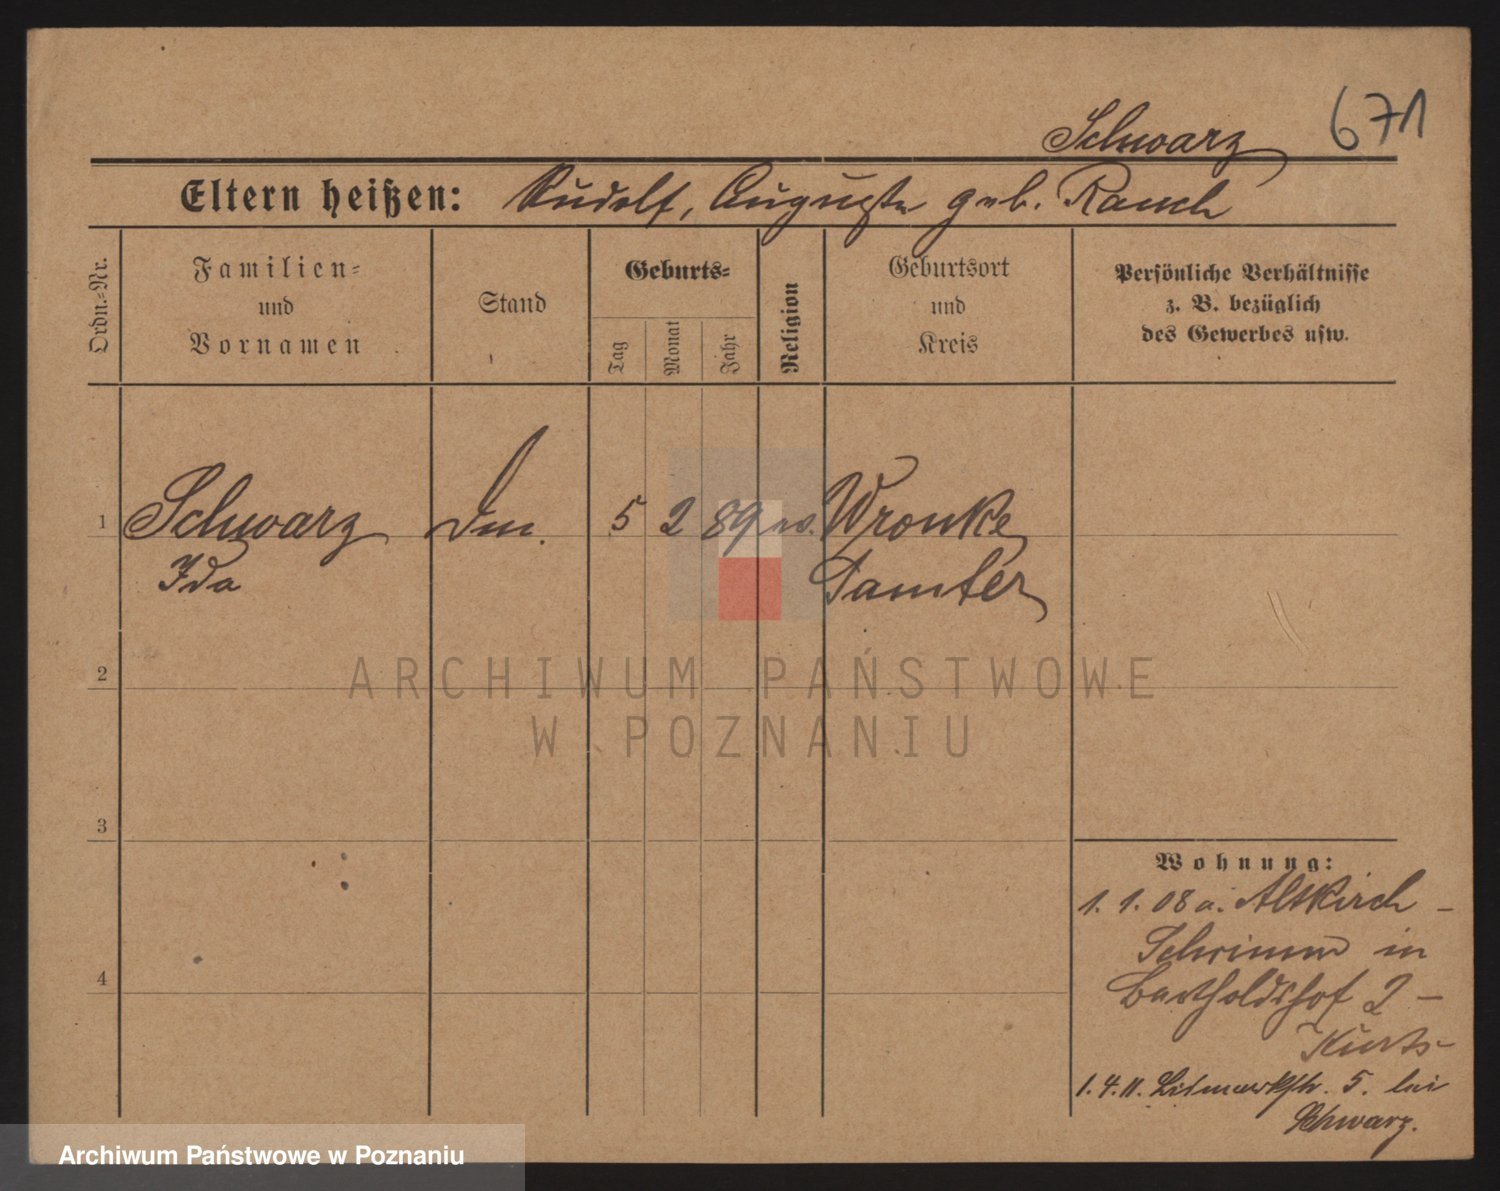 Schwarz 671
Eltern heißen: Rudolf, Auguste geb. Rauch
Ordn.-Nr.
Familien-
und
Vornamen
Stand
Geburts-
Tag
Monat
Jahr
Religion
Geburtsort
und
Kreis
Persönliche Verhältnisse
z. B. bezüglich
des Gewerbes usw.
1 Schwarz 5 2 89 ev. Wronke
Ida Samter
2
ARCHIWUM PAŃSTWOWE
W POZNANIU
3
Wohnung:
1. 1. 08 a. Altkirch -
Schrimm in
4 Bartholdshof 2 -
Kurts
1.4.11. Bismarckstr. 5. bei
Schwarz.
Archiwum Państwowe w Poznaniu